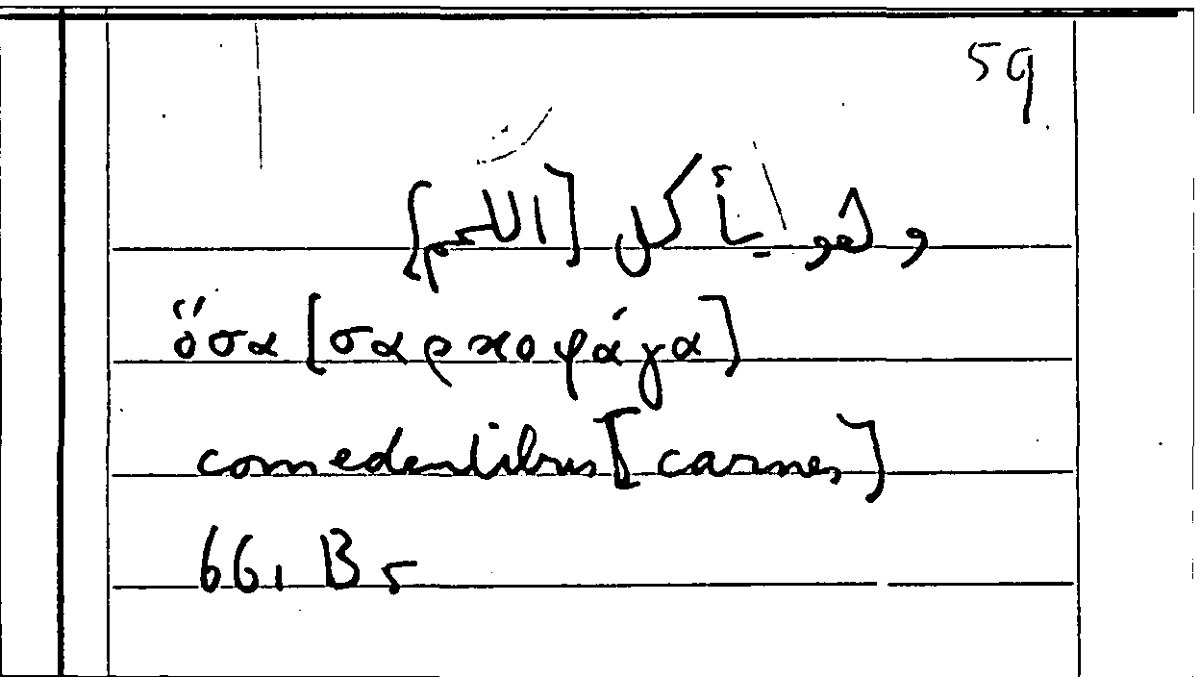 59
وهو يأكل [اللحم]
ὅσα [σαρκοφάγα]
comedentibus [carnes]
661 B 5